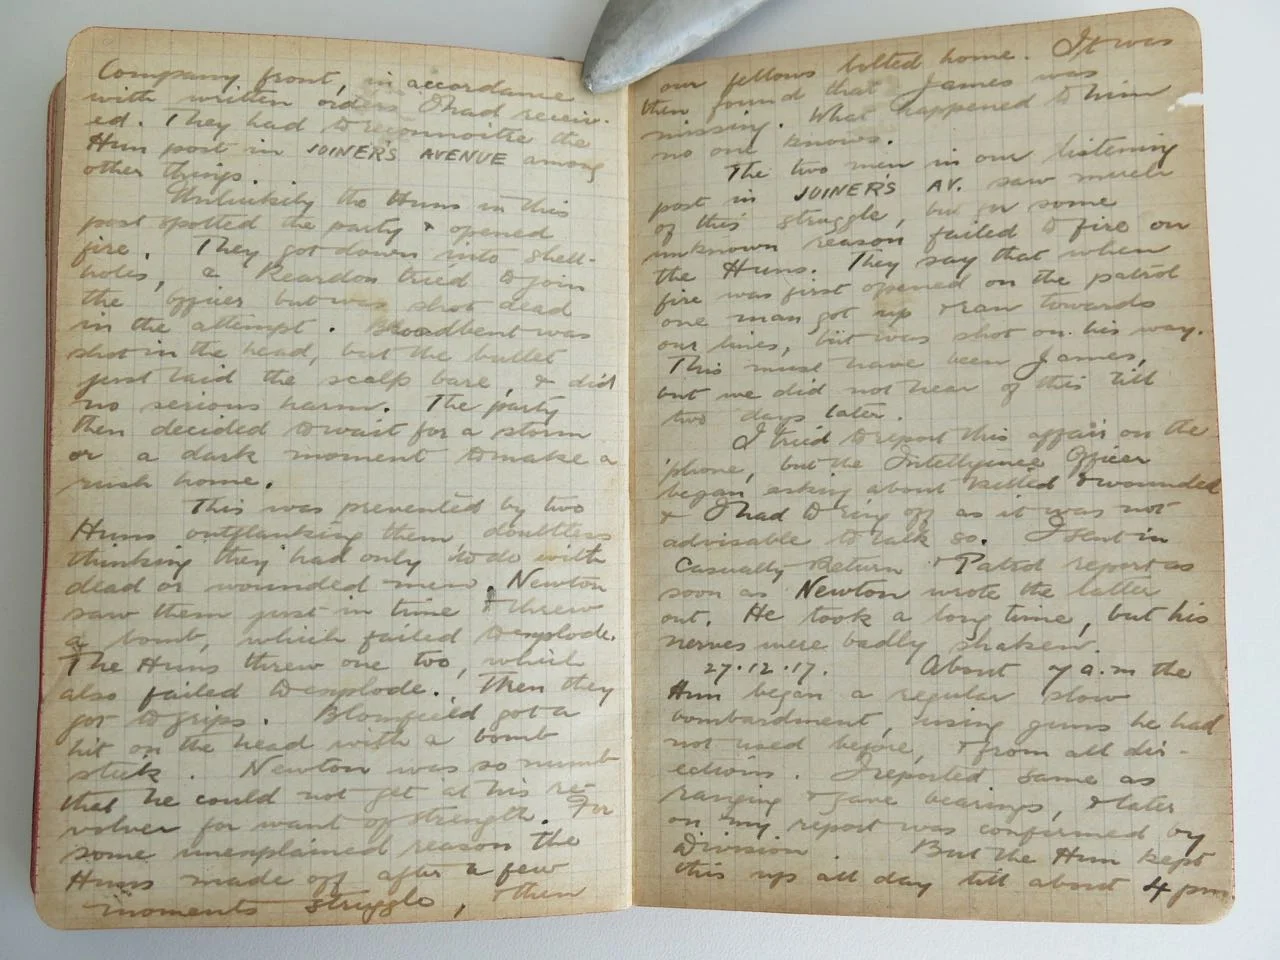 Company front, in accordance
with written orders I had receiv-
ed. They had to reconnoitre the
Hun post in JOINER'S AVENUE among
other things.
Unluckily the Huns in this
post spotted the party & opened
fire. They got down into shell-
holes, & Reardon tried to join
the Officer but was shot dead
in the attempt. Broadbent was
shot in the head, but the bullet
just laid the scalp bare, & did
no serious harm. The party
then decided to wait for a storm
or a dark moment to make a
rush home.
This was prevented by two
Huns outflanking them doubtless
thinking they had only to do with
dead or wounded men. Newton
saw them just in time & threw
a bomb, which failed to explode.
The Huns threw one too, which
also failed to explode. Then they
got to grips. Blomfield got a
hit on the head with a bomb
stick. Newton was so numb
that he could not get at his re-
volver for want of strength. For
some unexplained reason the
Huns made off after a few
moments struggle, & then
our fellows bolted home. It was
then found that James was
missing. What happened to him
no one knows.
The two men in our listening
post in JOINER'S AV. saw much
of this struggle, but for some
unknown reason failed to fire on
the Huns. They say that when
fire was first opened on the patrol
one man got up & ran towards
our lines, but was shot on his way.
This must have been James,
but we did not hear of this till
two days later.
I tried to report this affair on the
'phone, but the Intelligence Officer
began asking about killed & wounded
& I had to ring off as it was not
advisable to talk so. I sent in
Casualty Return & Patrol report as
soon as Newton wrote the latter
out. He took a long time, but his
nerves were badly shaken.
27.12.17. About 7 a.m the
Hun began a regular slow
bombardment, using guns he had
not used before, & from all dir-
ections. I reported same as
ranging & gave bearings, & later
on my report was confirmed by
Division. But the Hun kept
this up all day till about 4 pm